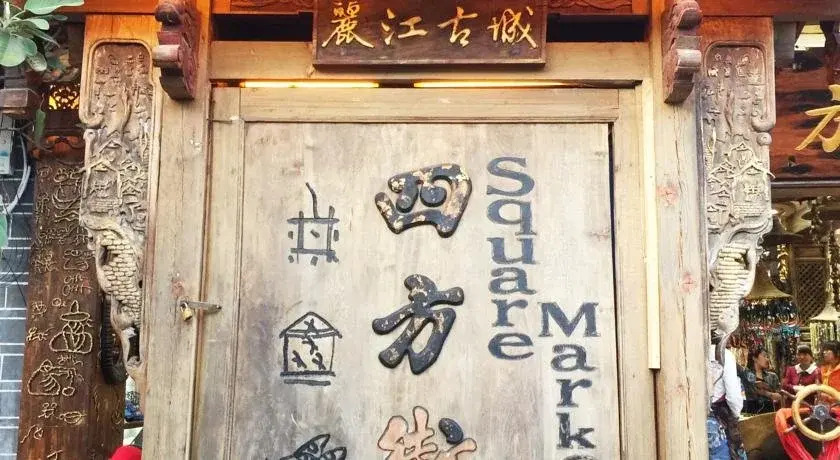 麗江古城
四方街
Square
Marke